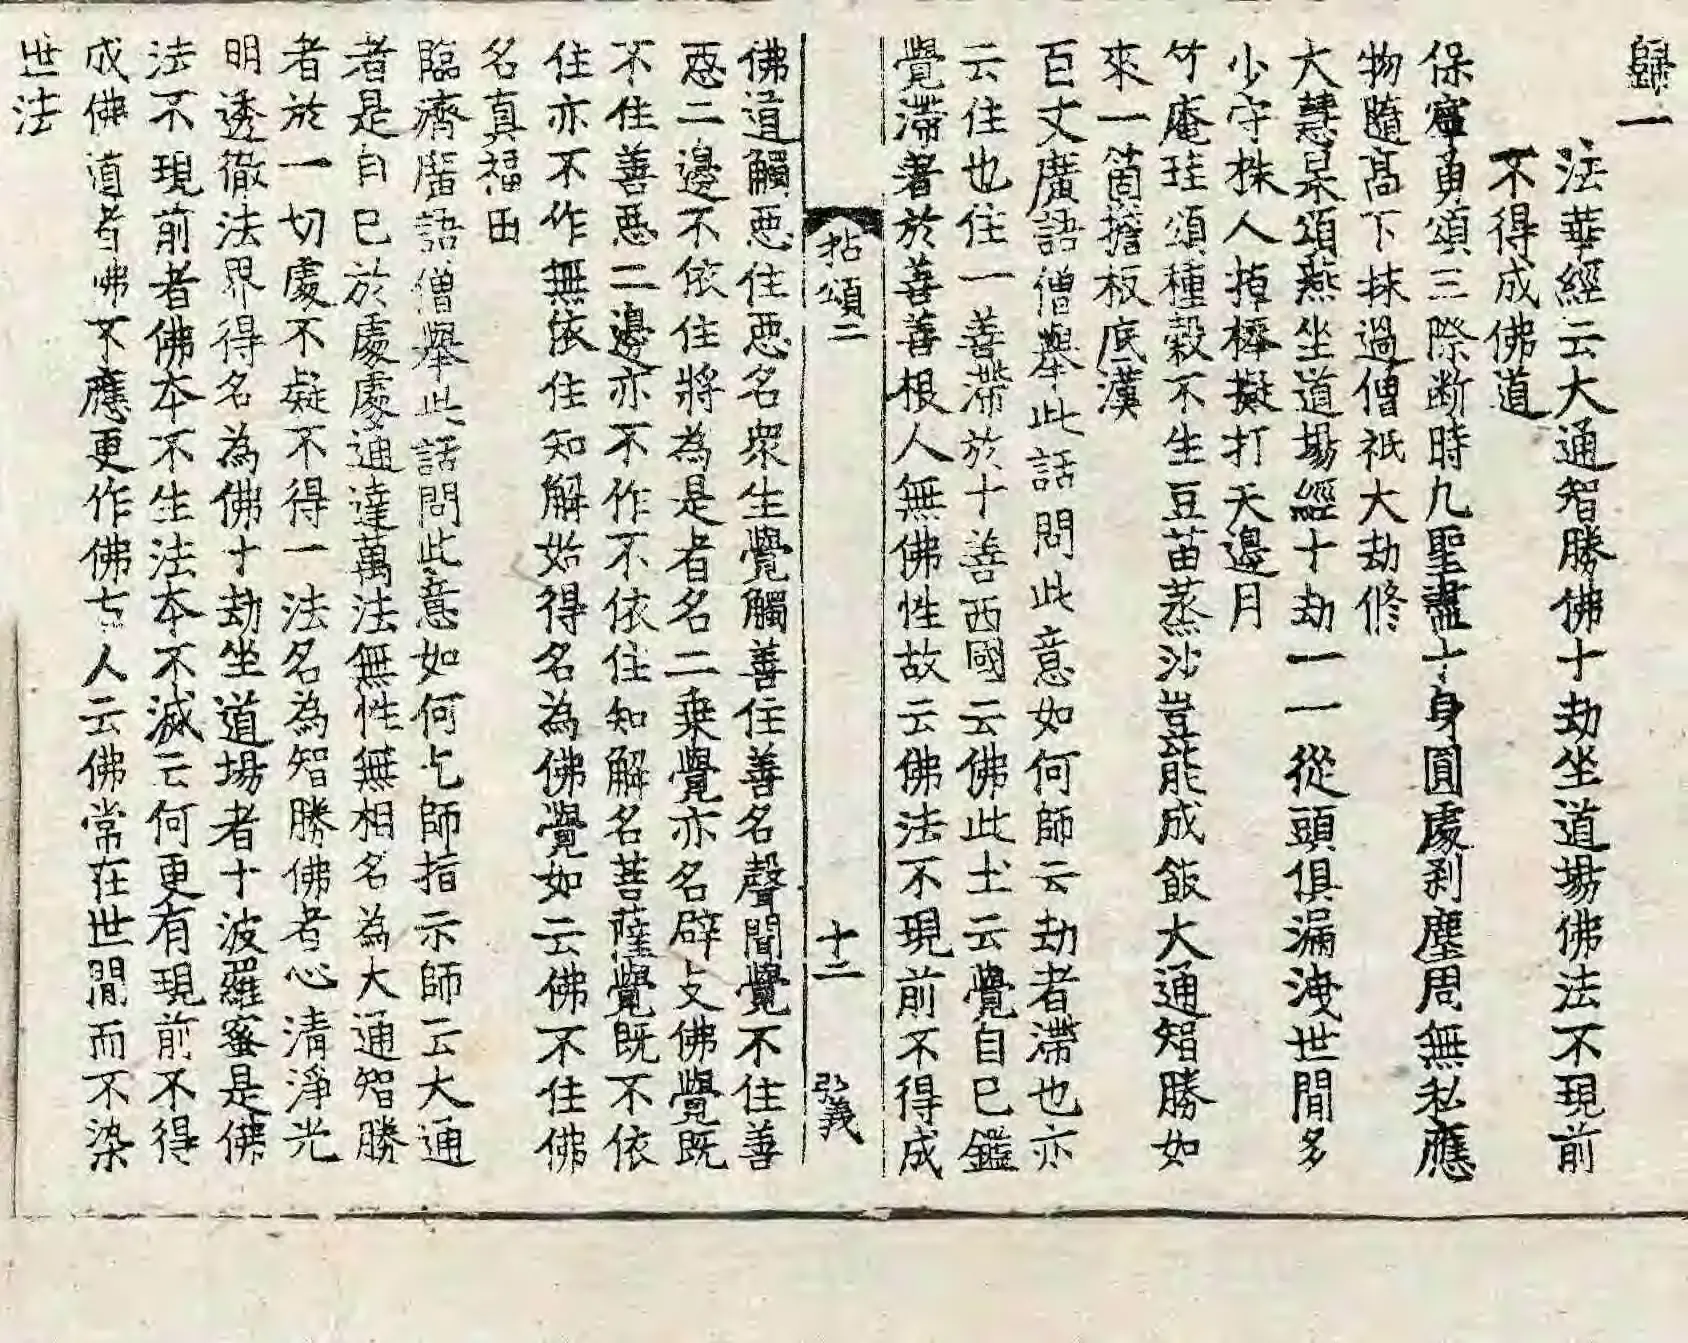 歸一
法華經云大通智勝佛十劫坐道場佛法不現前
不得成佛道
保寧勇頌三際断時九聖盡十身圓處刹塵周無私應
物隨高下抹過僧祇大劫修
大慧杲頌燕坐道場經十劫一一從頭俱漏洩世間多
少守株人掉棒擬打天邊月
竹庵珪頌種穀不生豆苗蒸沙豈能成飯大通智勝如
來一箇擔板底漢
百丈廣語僧舉此話問此意如何師云劫者滯也亦
云住也住一善滯於十善西國云佛此土云覺自已鑑
覺滯著於善善根人無佛性故云佛法不現前不得成
拈頌二 十二 弘義
佛道觸惡住惡名衆生覺觸善住善名聲聞覺不住善
惡二邊不依住將為是者名二乗覺亦名辟支佛覺既
不住善惡二邊亦不作不依住知解名菩薩覺既不依
住亦不作無依住知解始得名為佛覺如云佛不住佛
名真福田
臨濟廣語僧舉此話問此意如何乞師指示師云大通
者是自已於處處通達萬法無性無相名為大通智勝
者於一切處不疑不得一法名為智勝佛者心清淨光
明透徹法界得名為佛十劫坐道場者十波羅蜜是佛
法不現前者佛本不生法本不滅云何更有現前不得
成佛道者佛不應更作佛古人云佛常在世間而不染
世法